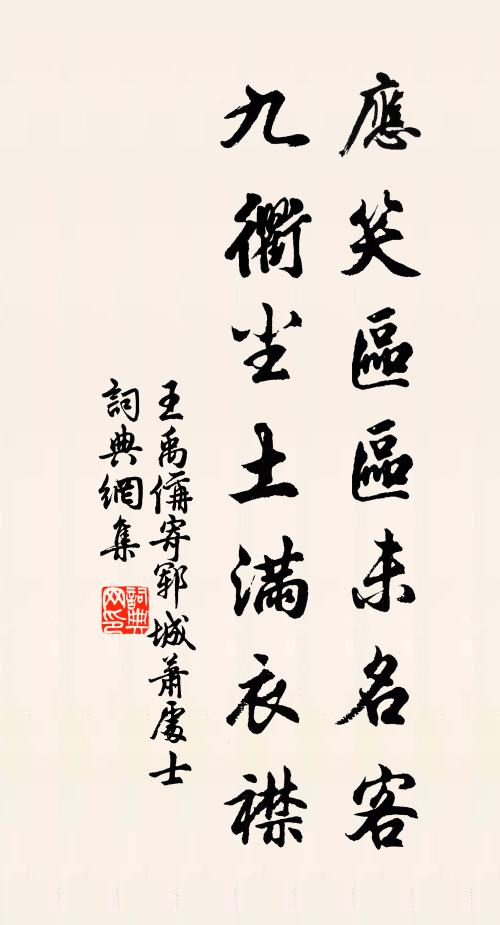 應笑區區未名客
九衢尘土满衣襟
王禹偁寄鄆城蕭處士
詞典網集
詞典网印